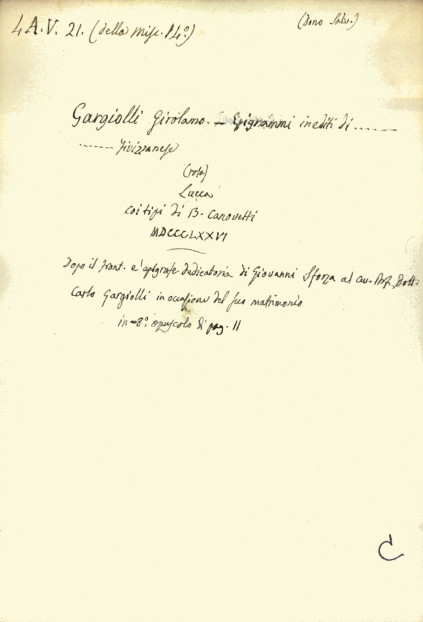 4 A. V. 21. (della Misc. 14º)
(Dono Salv.)
Gargiolli Girolamo. — Epigrammi inediti di ........
........ Fivizzanese
(rosa)
Lucca
coi tipi di B. Canovetti
MDCCCLXXVI
Dopo il front. è l'epigrafe dedicatoria di Giovanni Sforza al cav. Prof. Dott.
Carlo Gargiolli in occasione del suo matrimonio
in-8º. opuscolo di pag. 11
C